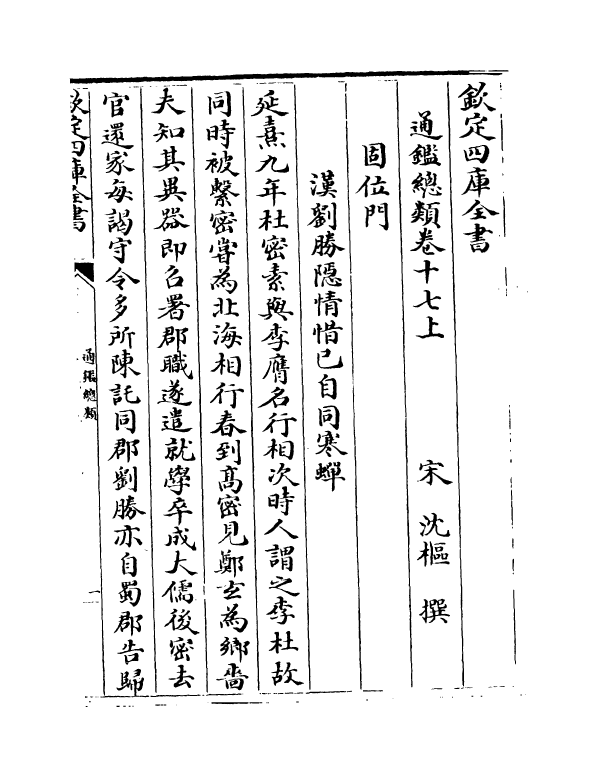 欽定四庫全書
通鑑總類卷十七上
宋 沈樞 撰
固位門
漢劉勝隱情惜已自同寒蟬
延熹九年杜密素與李膺名行相次時人謂之李杜故
同時被繫密嘗為北海相行春到髙密見鄭玄為鄉嗇
夫知其異器即召署郡職遂遣就學卒成大儒後密去
官還家每謁守令多所陳託同郡劉勝亦自蜀郡告歸
欽定四庫全書
通鑑總類
一